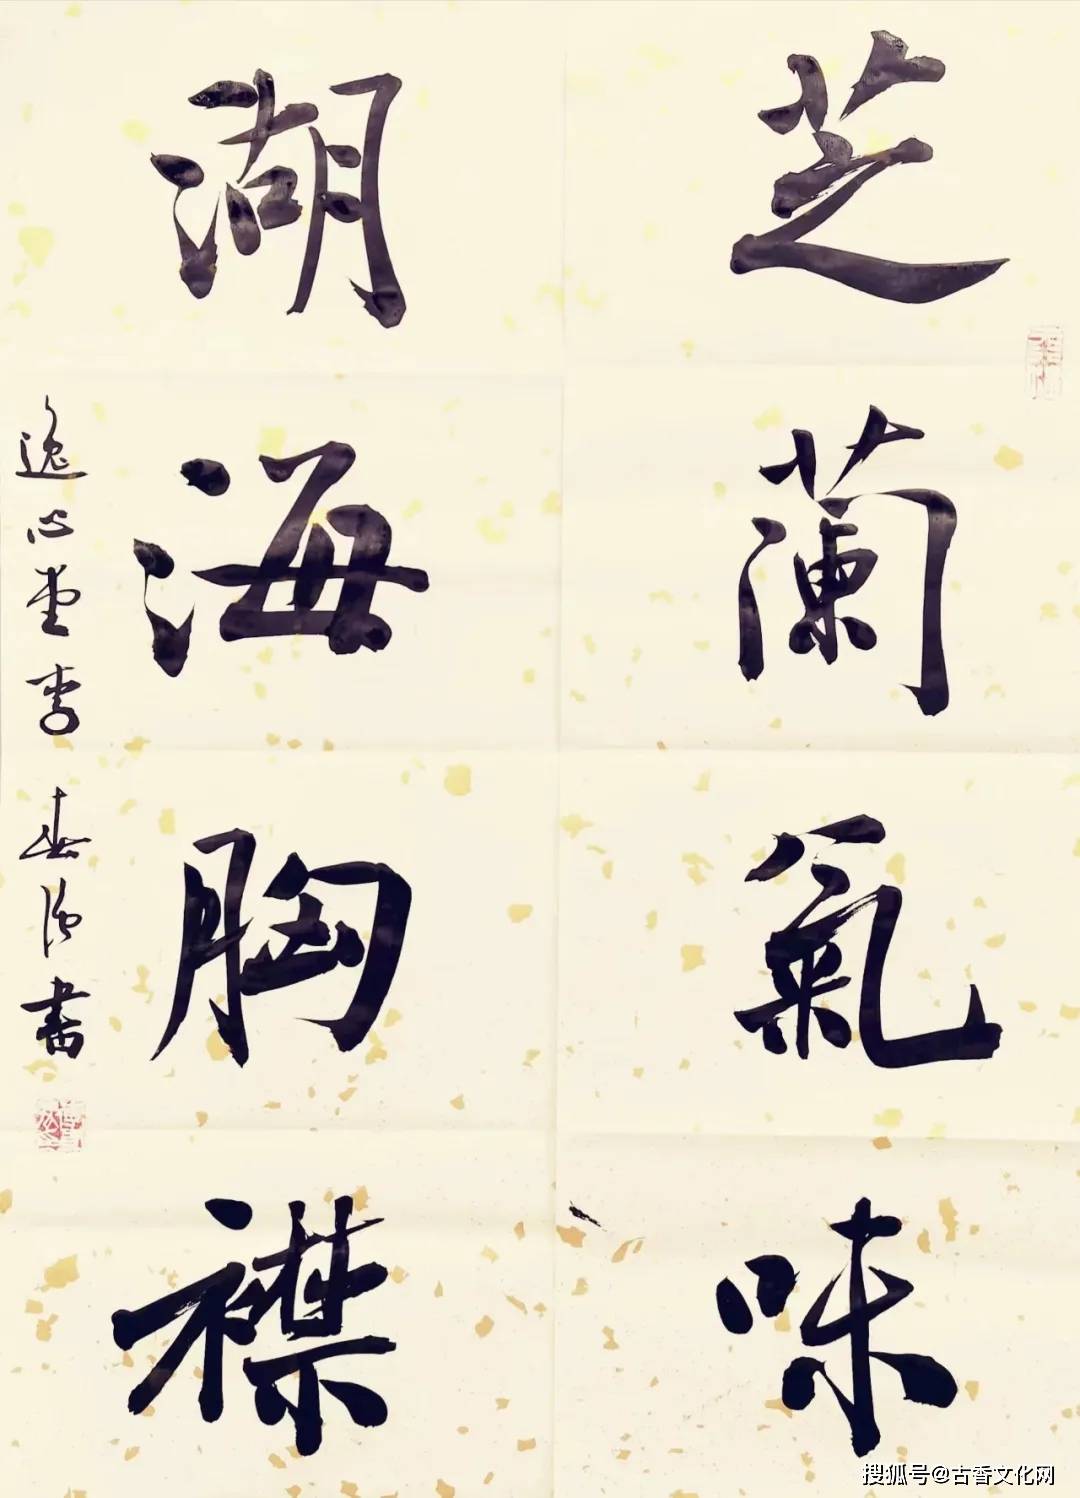 芝蘭氣味
湖海胸襟
逸心堂李春江書
搜狐号@古香文化网